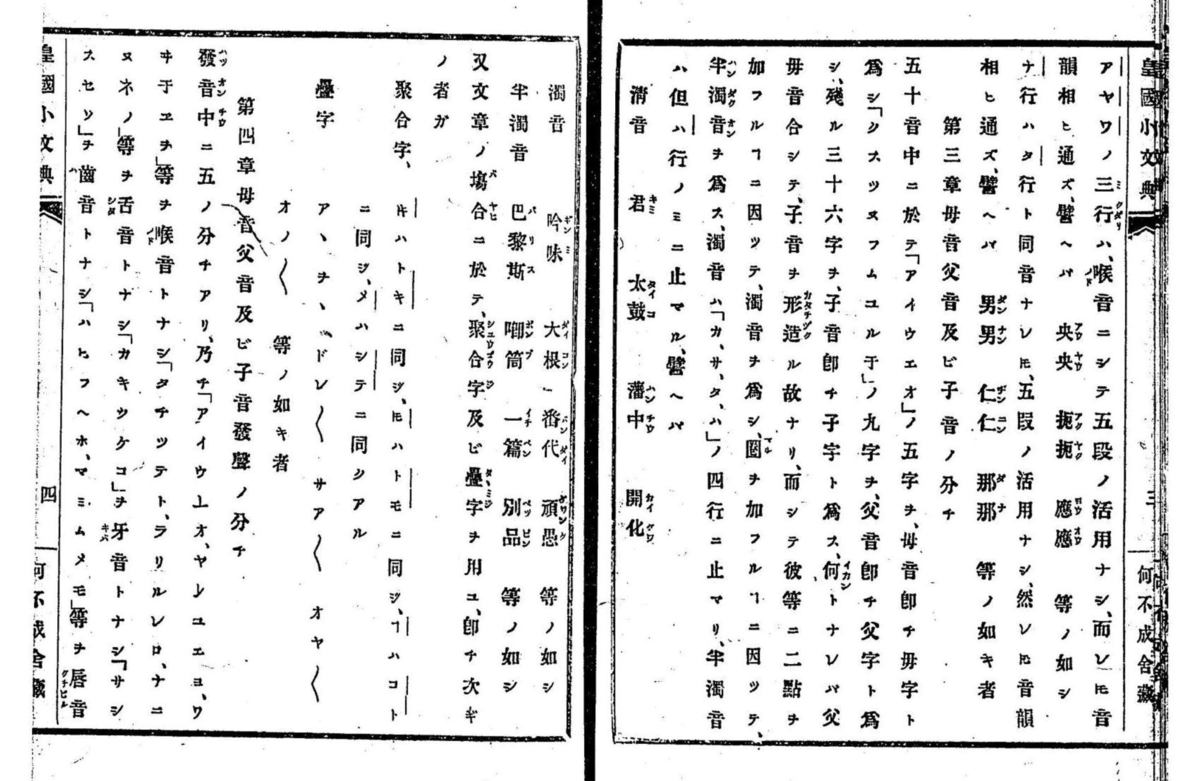 皇國小文典
三
何不成舍藏
アヤワノ三行ハ、喉音ニシテ五段ノ活用ナシ、而シヒ音
韻相ヒ通ズ、譬ヘバ 央央 扼扼 應應 等ノ如シ
ナ行ハタ行ト同音ナレヒ、五段ノ活用ナシ、然シヒ音韻
相ヒ通ズ、譬ヘバ 男男 仁仁 那那 等ノ如キ者
第三章母音父音及ビ子音ノ分チ
五十音中ニ於テ「アイウエオ」ノ五字ヲ、母音卽チ母字ト
爲シ「クスツヌフムユル于」ノ九字ヲ、父音卽チ父字ト爲
シ、殘ル三十六字ヲ、子音卽チ子字ト爲ス、何トナレバ父
母音合シテ、子音ヲ形造ル故ナリ、而シテ彼等ニ二點ヲ
加フルヿニ因ツテ、濁音ヲ爲シ、圏ヲ加フルヿニ因ツテ、
半濁音ヲ爲ス、濁音ハ「カ、サ、タ、ハ」ノ四行ニ止マリ、半濁音
ハ但ハ行ノミニ止マル、譬ヘバ
淸音 君 太鼓 藩中 開化
濁音 吟味 大根 番代 頑愚 等ノ如シ
半濁音 巴黎斯 喞筒 一篇 別品 等ノ如シ
又文章ノ塲合ニ於テ、聚合字及ビ疊字ヲ用ユ、卽チ次ギ
ノ者ガ
聚合字、 𪜈ハトキニ同ジ、𪜈ハトモニ同ジ、ヿハコト
ニ同ジ、〆ハシテニ同シアル
疊字 ア、ヲ、、ドレ〱 サア〱 オヤ〱
オノ〱 等ノ如キ者
第四章母音父音及ビ子音發聲ノ分チ
發音中ニ五ノ分チアリ、乃チ「アイウ上オ、ヤレユエヨ、ワ
ヰ于ヱヲ」等ヲ喉音トナシ「タチツテト、ラリルレロ、ナニ
ヌネノ」等ヲ舌音トナシ「カキクケコ」ヲ牙音トナシ「サシ
スセソ」ヲ齒音トナシ「ハヒフヘホ、マミムメモ」等ヲ唇音
皇國小文典
四
何不成舍藏